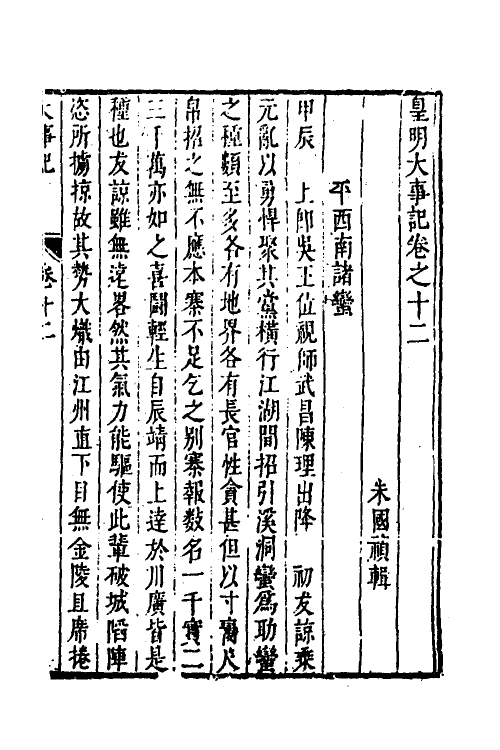 皇明大事記卷之十二
朱國禎輯
平西南諸蠻
甲辰　上卽吳王位視師武昌陳理出降　初友諒乘
元亂以勇悍聚其黨橫行江湖間招引溪洞蠻爲助蠻
之種類至多各有地界各有長官性貪甚但以寸幣尺
帛招之無不應本寨不足乞之別寨報數名一千實二
三千萬亦如之喜鬬輕生自辰靖而上達於川廣皆是
種也友諒雖無遠畧然其氣力能驅使此輩破城陷陣
恣所擄掠故其勢大熾由江州直下目無金陵且席捲
大事記　卷十二